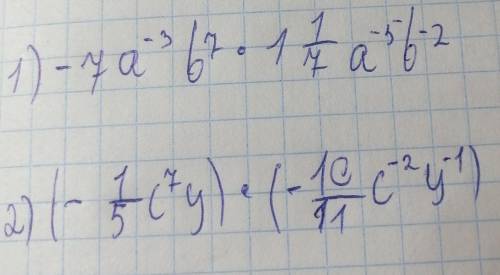 1) -7a⁻³b⁷ · 1 1/7 a⁻⁵b⁻²
2) (- 1/5 c⁷y) · (- 10/11 c⁻²y⁻¹)